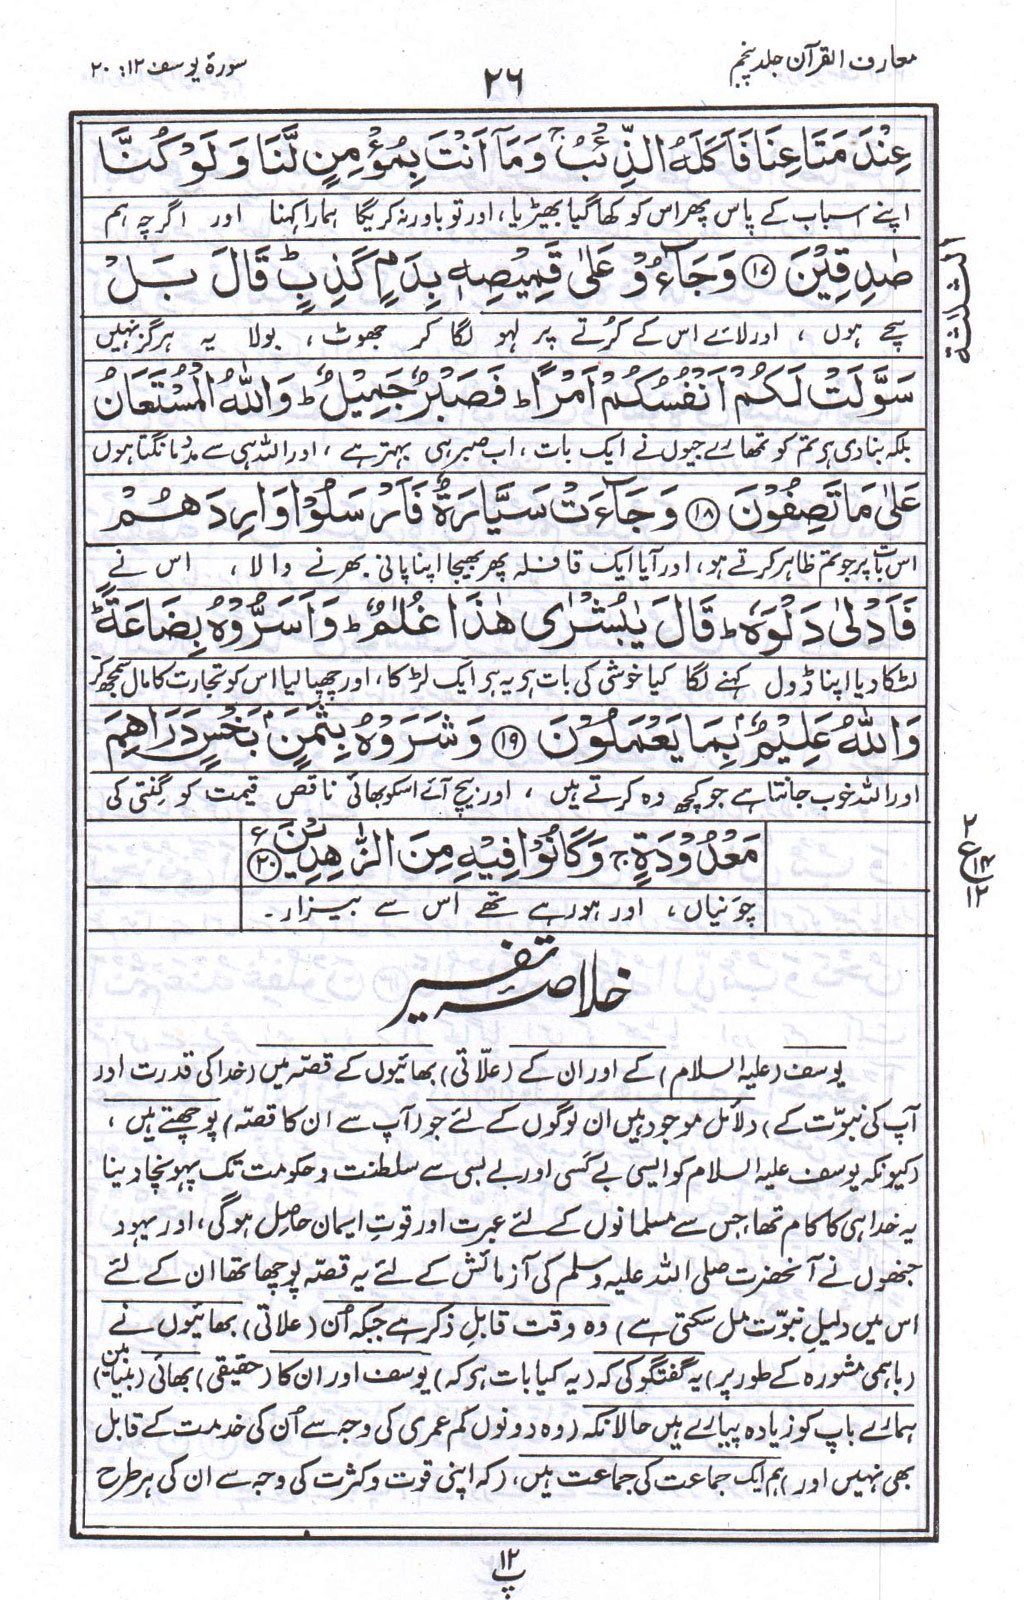 معارف القرآن جلد پنجم
۲۶
سورۃ یوسف ۱۲: ۲۰
عِنْدَ مَتَاعِنَا فَاَكَلَهُ الذِّئْبُ ۚ وَمَاۤ اَنْتَ بِمُؤْمِنٍ لَّنَا وَلَوْ كُنَّا
اپنے اسباب کے پاس پھر اس کو کھا گیا بھیڑیا، اور تو باور نہ کریگا ہمارا کہنا اور اگرچہ ہم
صٰدِقِيْنَ ﴿۱۷﴾ وَجَآءُوْ عَلٰى قَمِيْصِهٖ بِدَمٍ كَذِبٍ ؕ قَالَ بَلْ
سچے ہوں ، اور لائے اس کے کُرتے پر لہو لگا کر جھوٹ ، بولا یہ ہرگز نہیں
سَوَّلَتْ لَكُمْ اَنْفُسُكُمْ اَمْرًا ؕ فَصَبْرٌ جَمِيْلٌ ؕ وَاللّٰهُ الْمُسْتَعَانُ
بلکہ بنا دی ہر تم کو تمھارے جیوں نے ایک بات ، اب صبر ہی بہتر ہے ، اور اللہ ہی سے مدد مانگتا ہوں
عَلٰى مَا تَصِفُوْنَ ﴿۱۸﴾ وَجَآءَتْ سَيَّارَةٌ فَاَرْسَلُوْا وَارِدَهُمْ
اس بات پر جو تم ظاہر کرتے ہو، اور آیا ایک قافلہ پھر بھیجا اپنا پانی بھرنے والا ، اس نے
فَاَدْلٰى دَلْوَهٗ ؕ قَالَ يٰبُشْرٰى هٰذَا غُلٰمٌ ؕ وَاَسَرُّوْهُ بِضَاعَةً ؕ
لٹکا دیا اپنا ڈول کہنے لگا کیا خوشی کی بات ہر یہ ہر ایک لڑکا ، اور چھپا لیا اس کو تجارت کا مال سمجھ کر
وَاللّٰهُ عَلِيْمٌۢ بِمَا يَعْمَلُوْنَ ﴿۱۹﴾ وَشَرَوْهُ بِثَمَنٍۢ بَخْسٍ دَرَاهِمَ
اور اللہ خوب جانتا ہے جو کچھ وہ کرتے ہیں ، اور بیچ آئے اسکو بھائی ناقص قیمت کو گِنتی کی
مَعْدُوْدَةٍ ۚ وَكَانُوْا فِيْهِ مِنَ الزَّاهِدِيْنَ ﴿۲۰﴾ ع
چونیاں ، اور ہو رہے تھے اس سے بیزار۔
خلاصۂ تفسیر
یوسف (علیہ السلام) کے اور ان کے (علّاتی) بھائیوں کے قصّہ میں (خدا کی قدرت اور
آپ کی نبوّت کے) دلائل موجود ہیں ان لوگوں کے لئے جو (آپ سے ان کا قصّہ) پوچھتے ہیں ،
(کیونکہ یوسف علیہ السلام کو ایسی بے کسی اور بے بسی سے سلطنت و حکومت تک پہونچا دینا
یہ خدا ہی کا کام تھا، جس سے مسلمانوں کے لئے عبرت اور قوتِ ایمان حاصل ہوگی ، اور یہود
جنھوں نے آنحضرت صلی اللہ علیہ وسلم کی آزمائش کے لئے یہ قصّہ پوچھا تھا ان کے لئے
اس میں دلیل نبوّت مل سکتی ہے) وہ وقت قابلِ ذکر ہے جبکہ اُن (علاتی) بھائیوں نے
(باہمی مشورہ کے طور پر) یہ گفتگو کی کہ (یہ کیا بات ہر کہ) یوسف اور ان کا (حقیقی) بھائی (بنیامین)
ہمارے باپ کو زیادہ پیارے ہیں حالانکہ (وہ دونوں کم عمری کی وجہ سے اُن کی خدمت کے قابل
بھی نہیں اور) ہم ایک جماعت کی جماعت ہیں، (کہ اپنی قوت و کثرت کی وجہ سے ان کی ہر طرح
الثلثة
۲
ع
۱۲
۱۲
پ